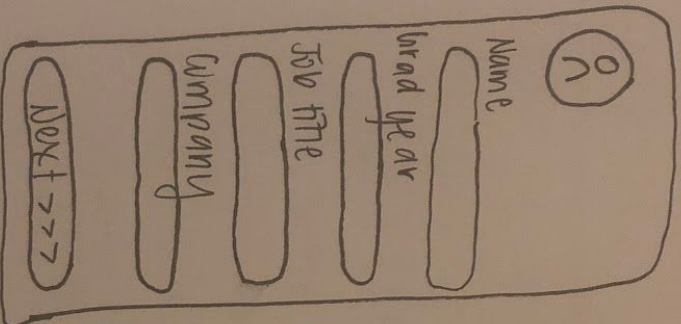 Name
Grad year
Job title
Company
Next >>>